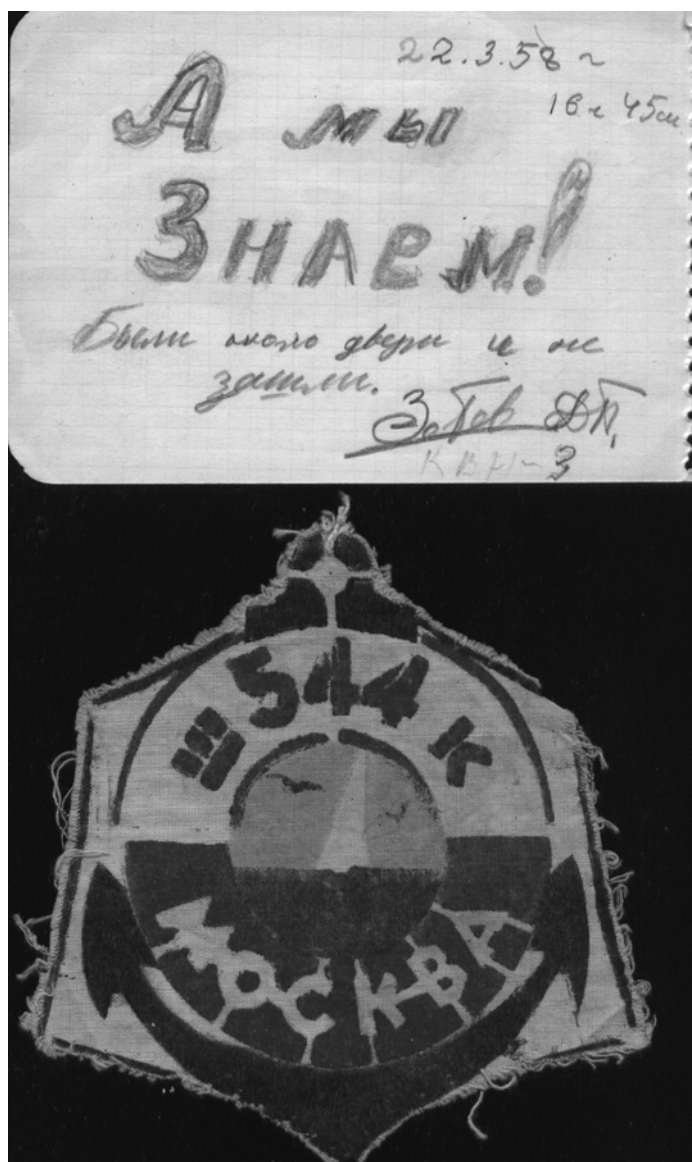 22.3.58 г
16 ч 45 м
А мы
Знаем!
Были около двери и не
зашли.
Зотов ДП,
КВН-3
Ш 544 К
МОСКВА